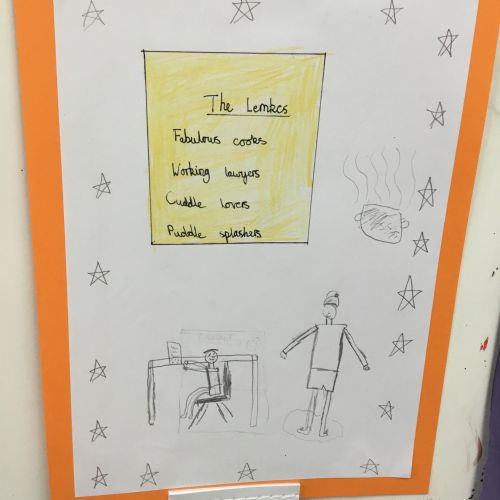 The Lemkes
Fabulous cooks
Working lawyers
Cuddle lovers
Puddle splashers